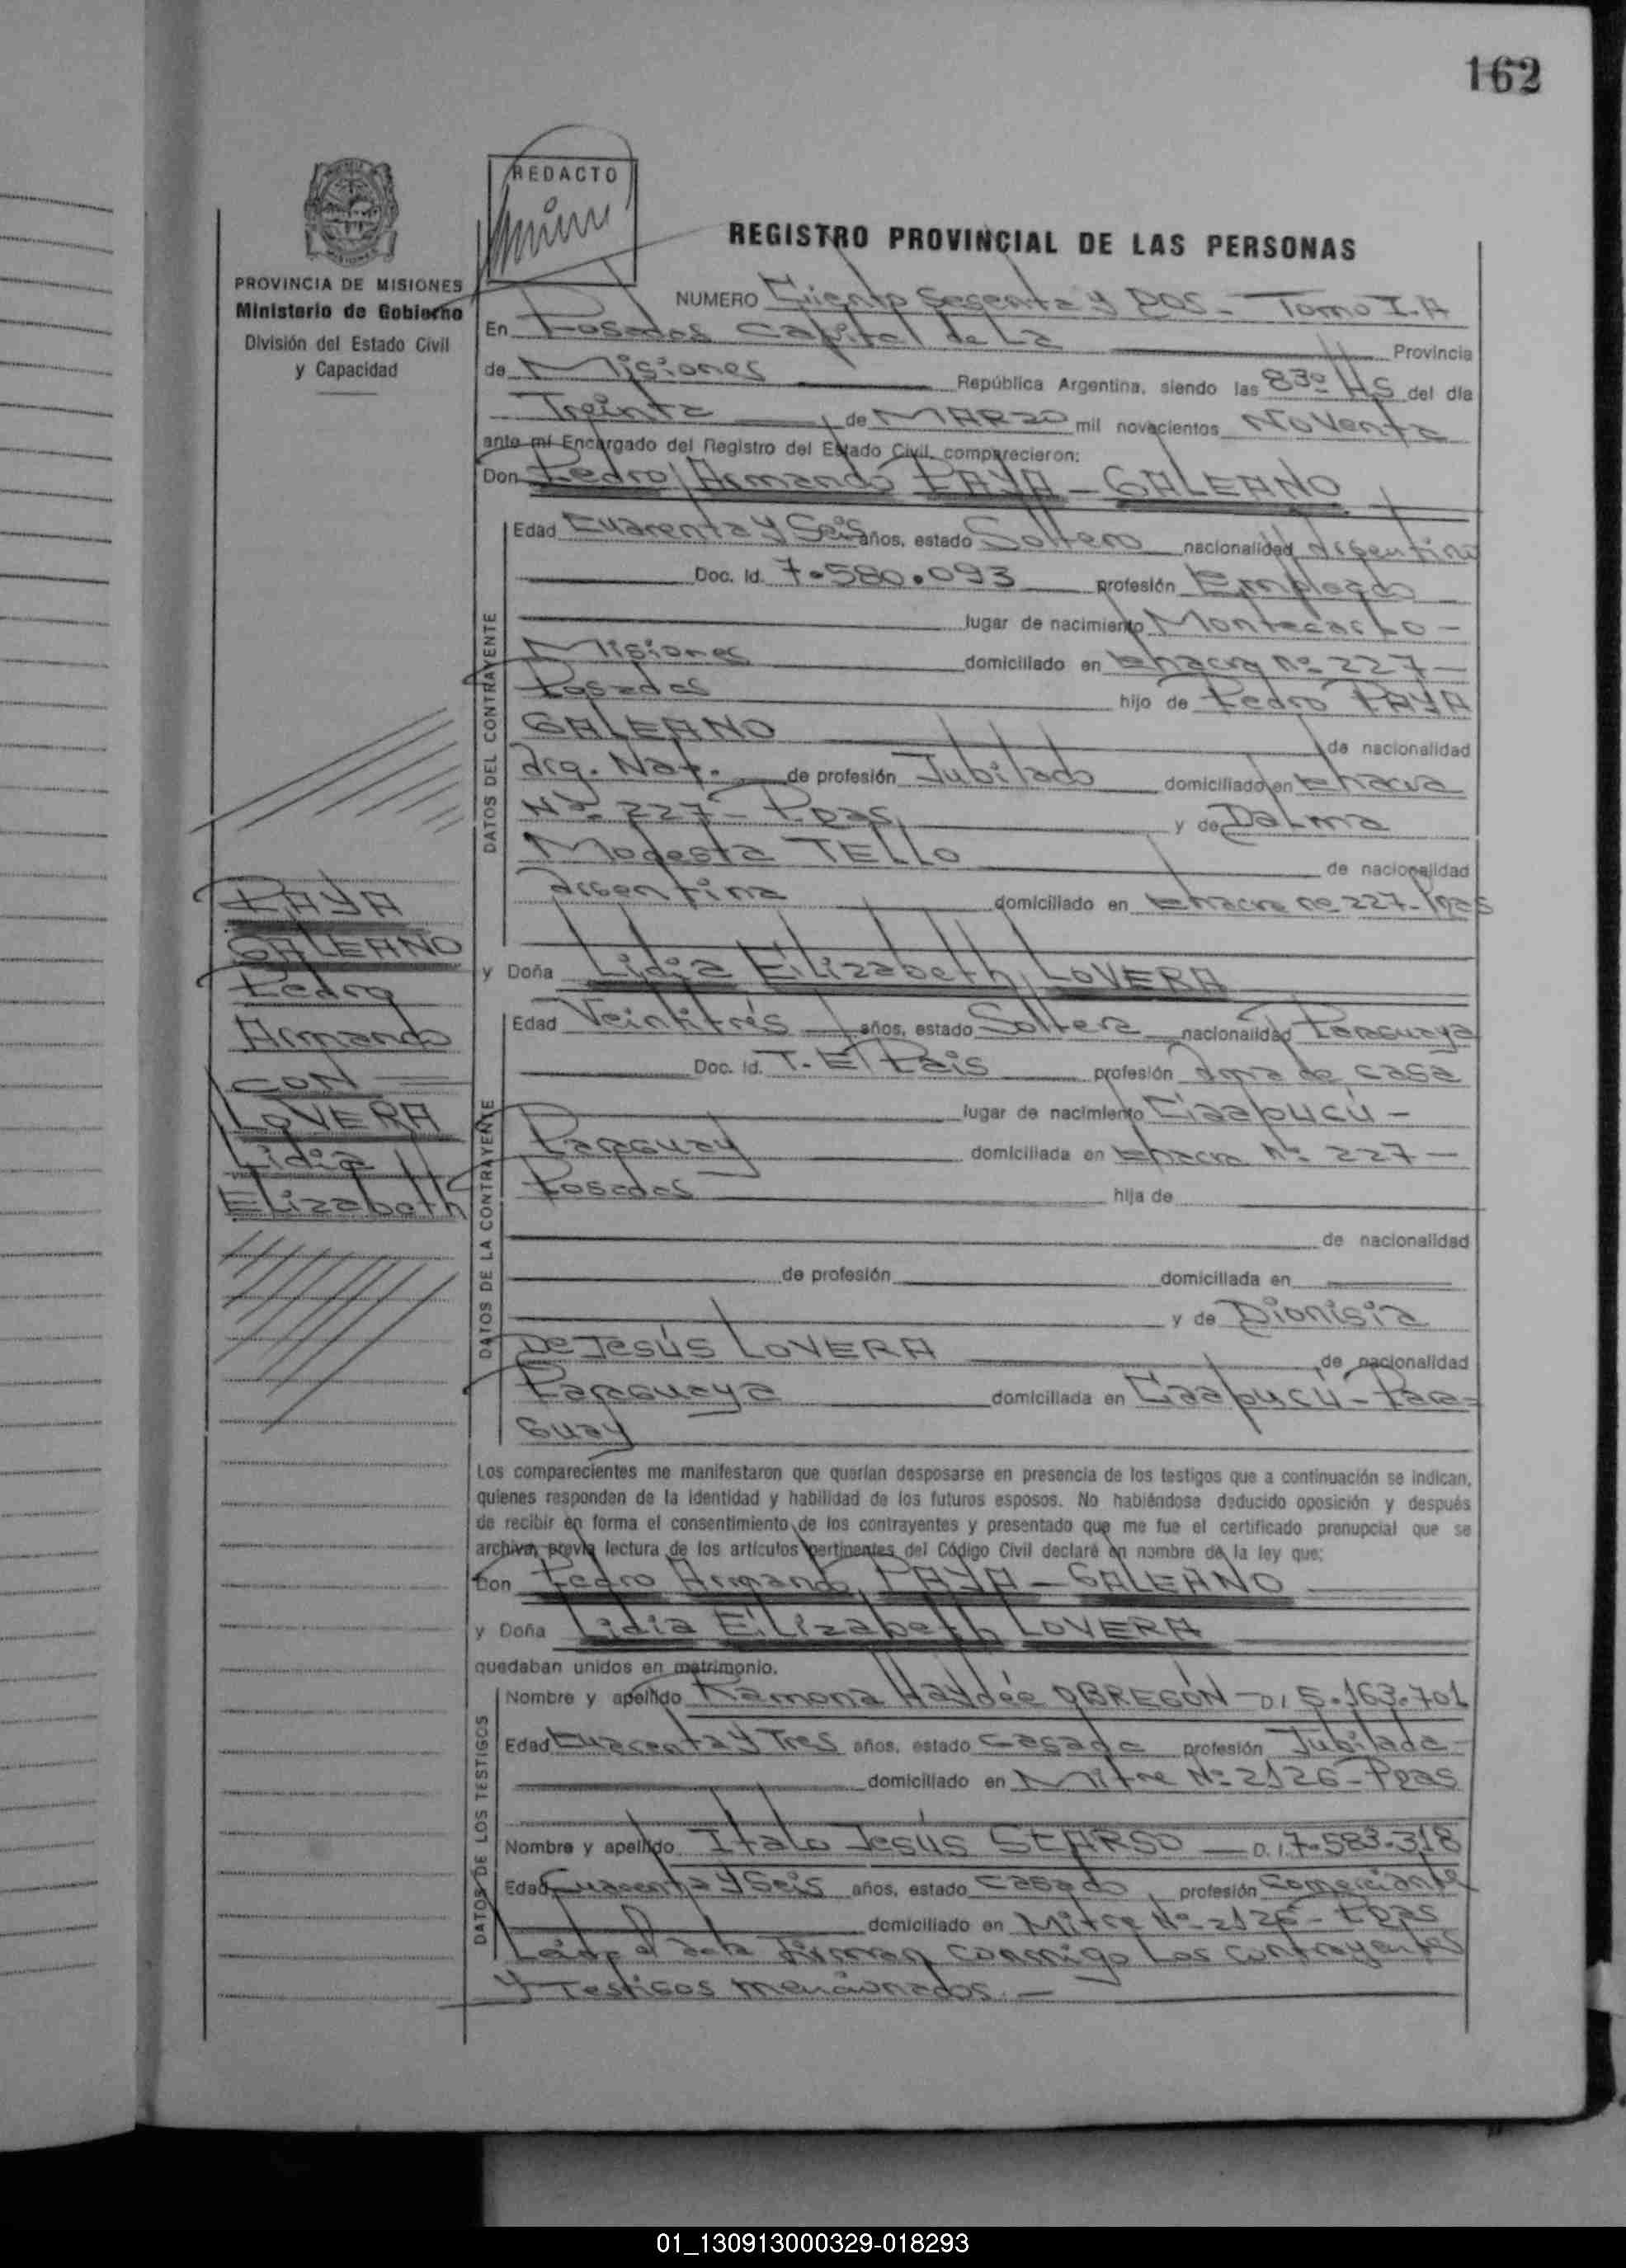 162
REDACTO
REGISTRO PROVINCIAL DE LAS PERSONAS
PROVINCIA DE MISIONES
Ministerio de Gobierno
División del Estado Civil
y Capacidad
NUMERO Ciento Sesenta y Dos - Tomo I.A
En Posadas Capital de La Provincia
de Misiones República Argentina, siendo las 8³⁰ HS del día
Treinta de MARZO mil novecientos Noventa
ante mí Encargado del Registro del Estado Civil, comparecieron:
Don Pedro Armando PAYA - GALEANO
DATOS DEL CONTRAYENTE
Edad Cuarenta y Seis años, estado Soltero nacionalidad Argentino
Doc. Id. 7.580.093 profesión Empleado
lugar de nacimiento Montecarlo -
Misiones domiciliado en Chacra Nº 227 -
Posadas hijo de Pedro PAYA
GALEANO de nacionalidad
Arg. Nat. de profesión Jubilado domiciliado en Chacra
Nº 227 - Pdas y de Dalma
Modesta TELLO de nacionalidad
Argentina domiciliado en Chacra nº 227 - Pdas
y Doña Lidia Elizabeth LOVERA
DATOS DE LA CONTRAYENTE
Edad Veintitrés años, estado Soltera nacionalidad Paraguaya
Doc. Id. T. El País profesión Ama de casa
lugar de nacimiento Caapucú -
Paraguay domiciliada en Chacra Nº 227 -
Posadas hija de
de nacionalidad
de profesión domiciliada en
y de Dionisia
De Jesús LOVERA de nacionalidad
Paraguaya domiciliada en Caapucú - Para=
guay
PAYA
GALEANO
Pedro
Armando
CON
LOVERA
Lidia
Elizabeth
Los comparecientes me manifestaron que querían desposarse en presencia de los testigos que a continuación se indican,
quienes responden de la identidad y habilidad de los futuros esposos. No habiéndose deducido oposición y después
de recibir en forma el consentimiento de los contrayentes y presentado que me fue el certificado prenupcial que se
archiva, previa lectura de los artículos pertinentes del Código Civil declaré en nombre de la ley que;
Don Pedro Armando PAYA - GALEANO
y Doña Lidia Elizabeth LOVERA
quedaban unidos en matrimonio.
DATOS DE LOS TESTIGOS
Nombre y apellido Ramona Haydée OBREGÓN - D.I 5.163.701
Edad Cuarenta y Tres años, estado Casada profesión Jubilada -
domiciliado en Mitre Nº 2126 - Pdas
Nombre y apellido Italo Jesús D.I. 7.583.318
Edad Cuarenta y Seis años, estado Casado, profesión Comerciante
domiciliado en Mitre Nº 2126 - Pdas
Leída el acta firman conmigo los contrayentes
y Testigos mencionados. -
01_130913000329-018293